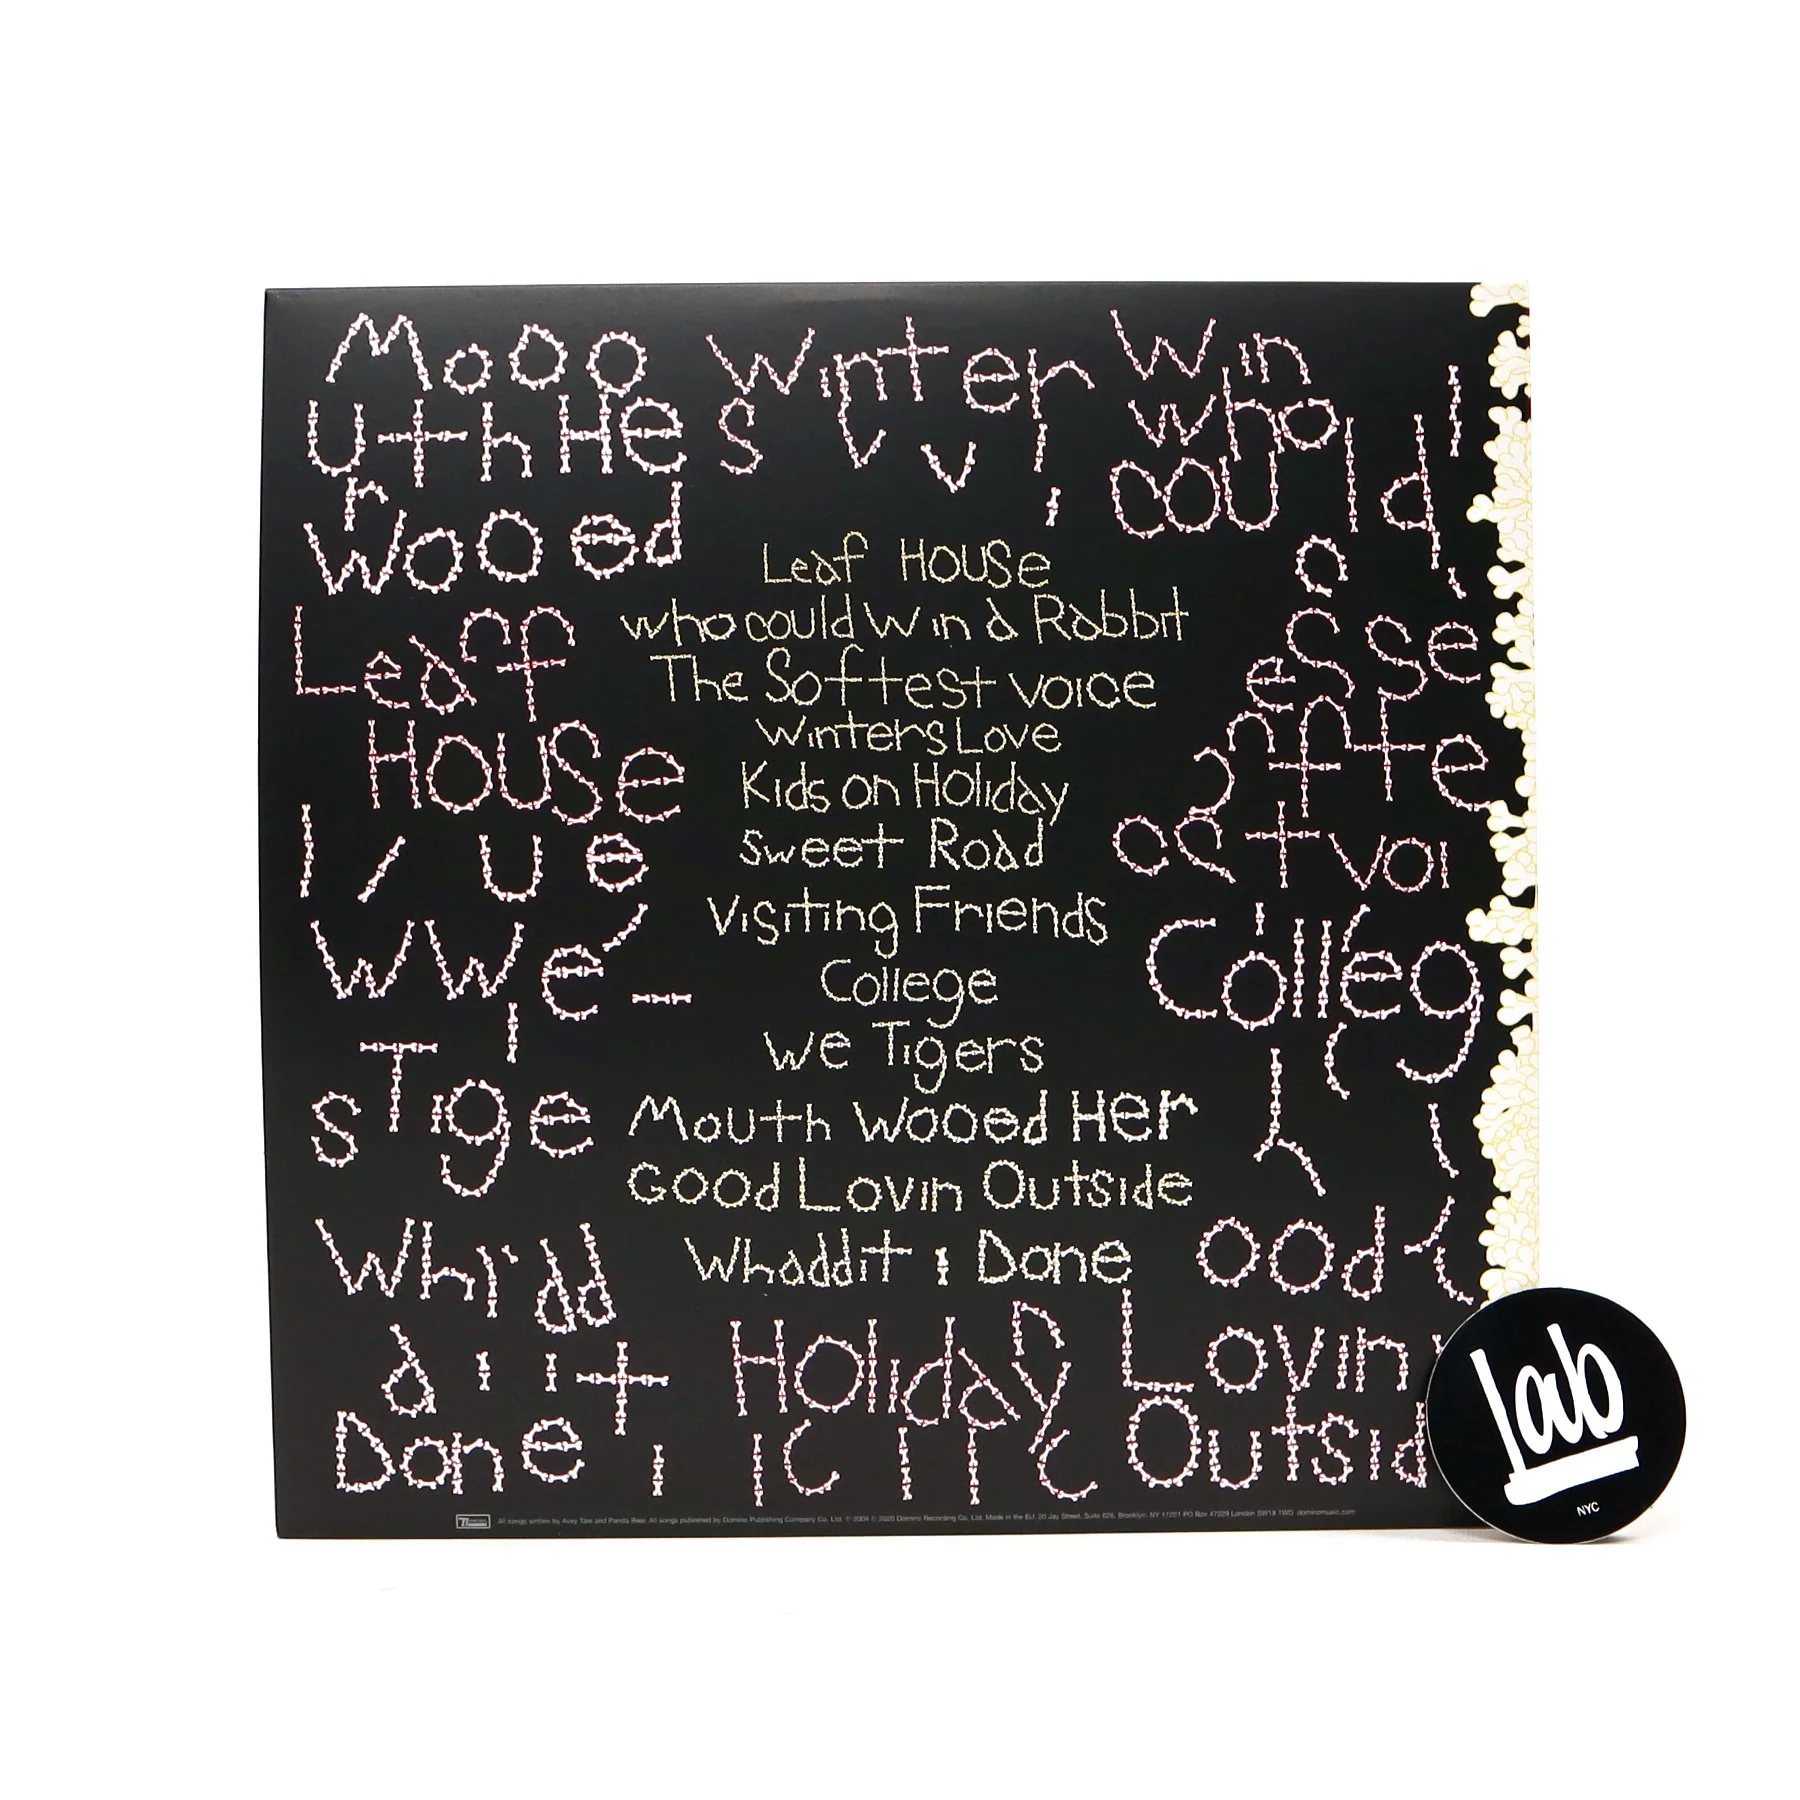 Mooo
uthHe
r
wooed
Winter
s
Win
who
could
Leaf House
who could Win a Rabbit
The Softest voice
Winters Love
Kids on Holiday
Sweet Road
Visiting Friends
College
We Tigers
Mouth Wooed Her
Good Lovin Outside
Whaddit i Done
Leaff
House
ue
wwe
sTige
Whi'dd
a i it
Done
Holiday
esse
ffte
tvoi
Colleg
ood
Lovin
Outsid
All songs written by Avey Tare and Panda Bear. All songs published by Domino Publishing Company Co. Ltd. ℗ 2004 © 2020 Domino Recording Co. Ltd. Made in the EU. 20 Jay Street, Suite 626, Brooklyn, NY 11201 PO Box 47029 London SW18 1WD dominomusic.com
Lab
NYC